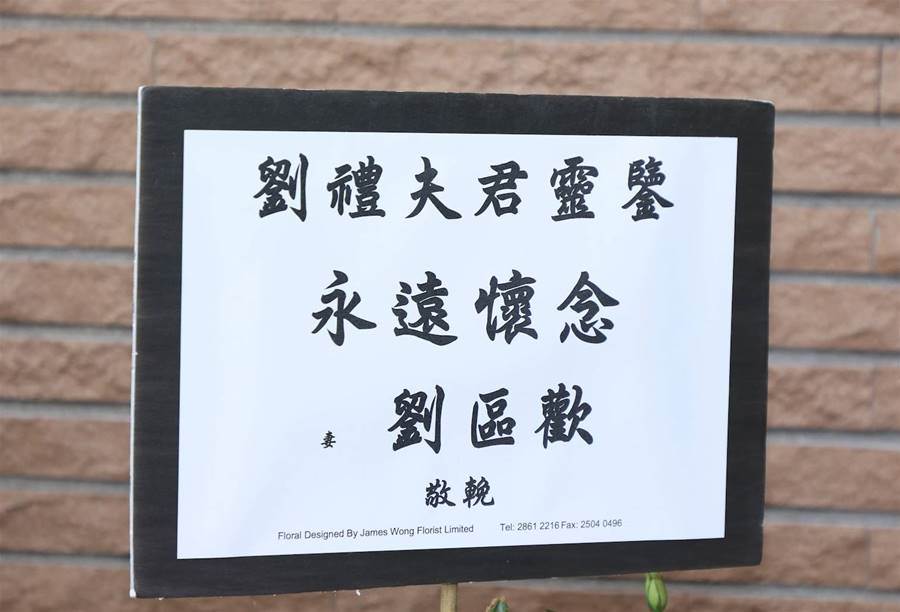 劉禮夫君靈鑒
永遠懷念
妻 劉區歡
敬輓
Floral Designed By James Wong Florist Limited Tel: 2861 2216 Fax: 2504 0496